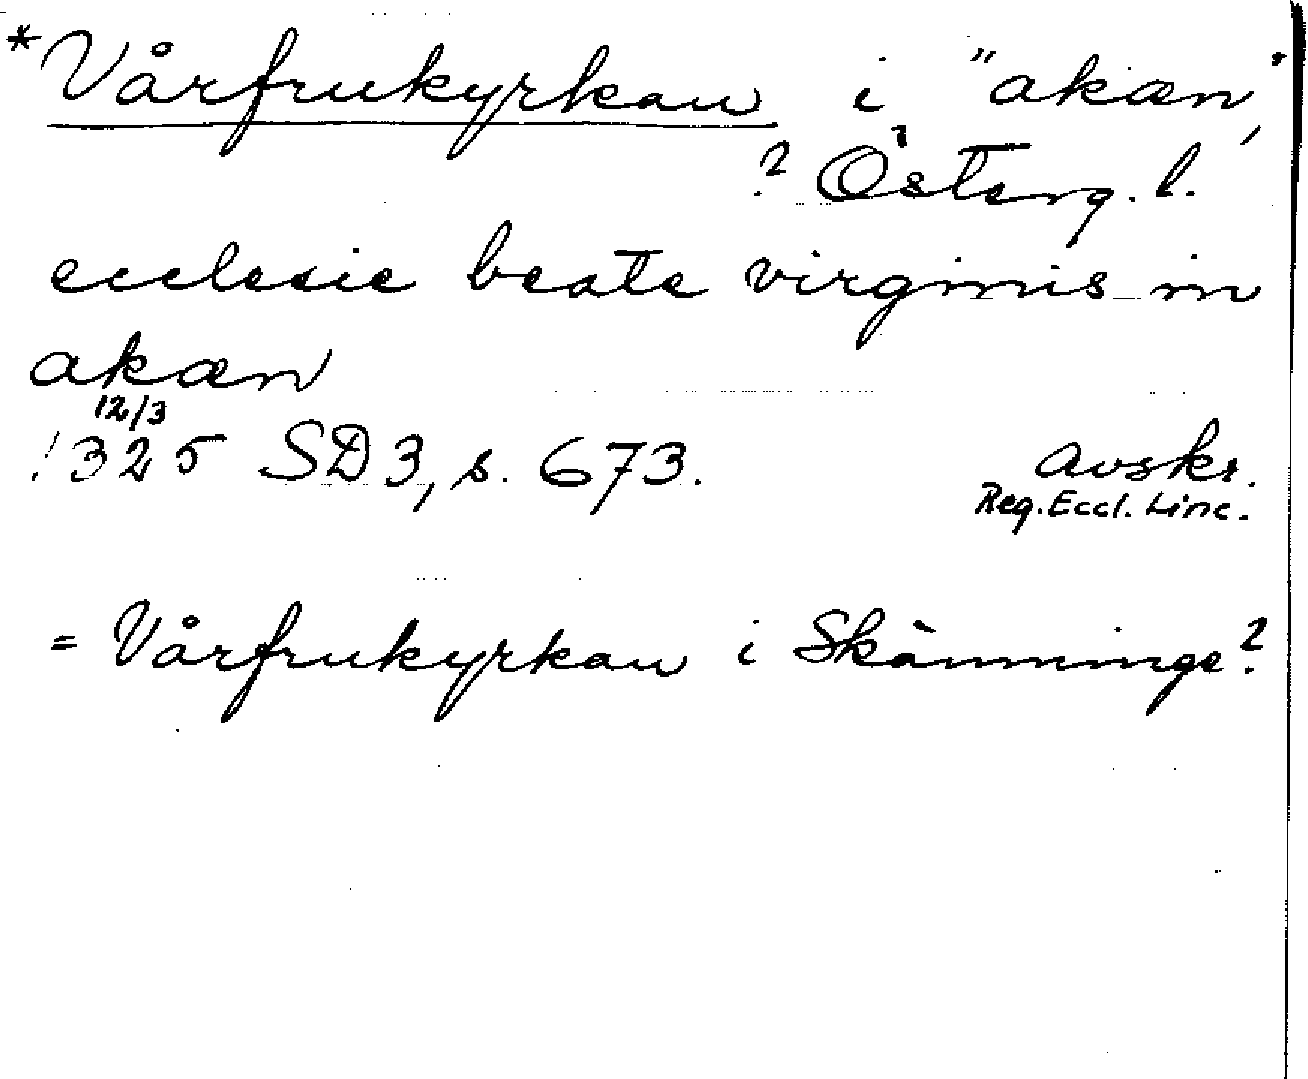 *Vårfrukyrkan i "akæn",
? Österg. l.
ecclesie beate virginis in
akæn
12/3
1325 SD3, s. 673. avskr.
Reg. Eccl. Linc.
= Vårfrukyrkan i Skänninge?